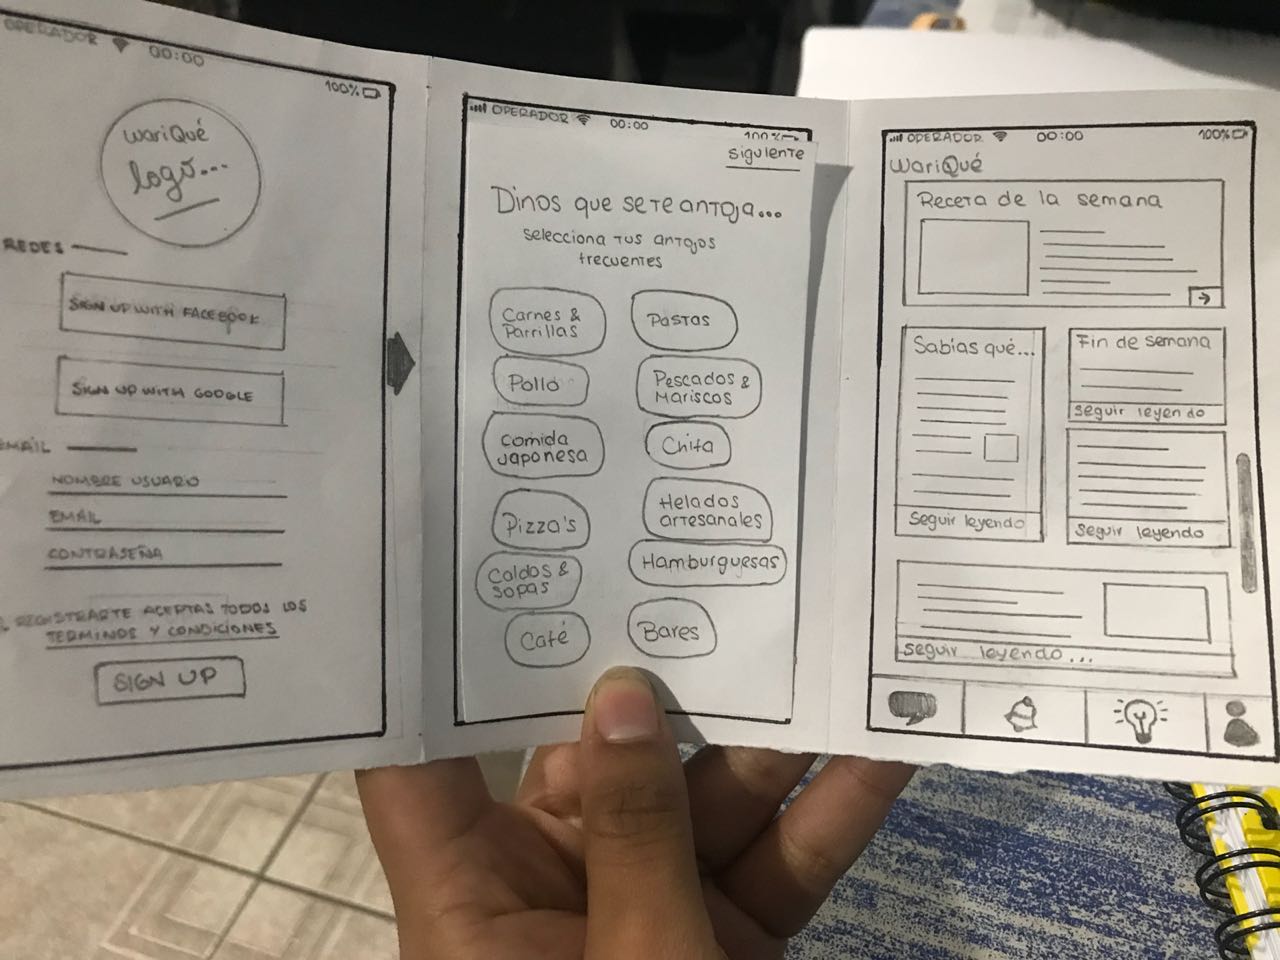 OPERADOR 00:00
100%
wariQué
logo...
REDES
SIGN UP WITH FACEBOOK
SIGN UP WITH GOOGLE
EMAIL
NOMBRE USUARIO
EMAIL
CONTRASEÑA
REGISTRARTE ACEPTAS TODOS LOS
TERMINOS Y CONDICIONES
SIGN UP
OPERADOR 00:00
100%
siguiente
Dinos que se te antoja...
selecciona tus antojos
frecuentes
Carnes &
Parrillas
Pastas
Pollo
Pescados &
Mariscos
Comida
Japonesa
Chifa
Pizza's
Helados
artesanales
Caldos &
sopas
Hamburguesas
Café
Bares
OPERADOR 00:00 100%
WariQué
Receta de la semana
Sabias qué...
Seguir leyendo
Fin de semana
seguir leyendo
seguir leyendo
seguir leyendo...